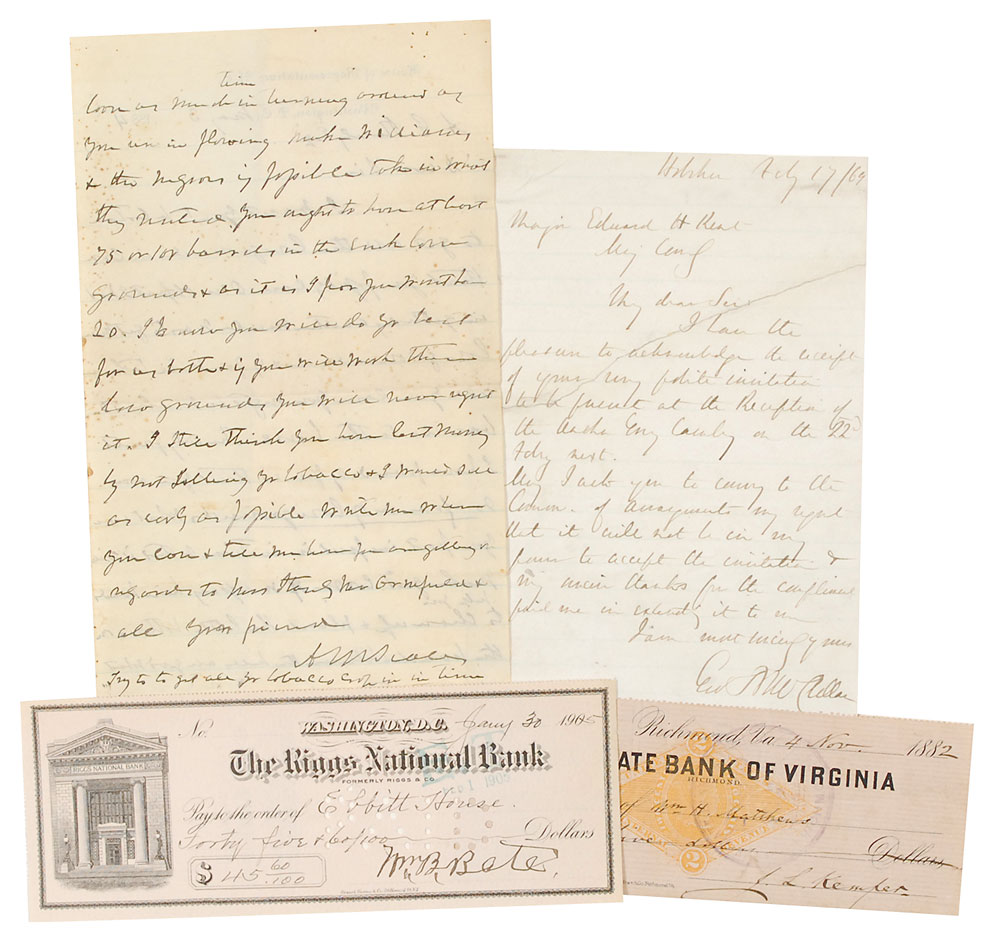 time
loon as much in turning around as
you are in plowing
Williams
& the negroes if possible
you ought to have at least
75 or 100 barrels in the
grounds & as it is I fear you wont have
20. I know you will do yr best
for us both & if you will work them
low grounds you will never regret
it. I still think you have lost money
by not selling yr tobacco & I would sell
as early as possible write me when
you can & tell me how you are getting on
regards to
all your friend
A M Scales
Try to get all yr tobacco crop in in time
Feby 17/69
Major Edward H Kent
My dear Sir
I have the
pleasure to acknowledge the receipt
of your very polite invitation
to be present at the Reception of
the Cavalry on the 22d
Feby next.
May I ask you to convey to the
Comm. of arrangements my regret
that it will not be in my
power to accept the invitation &
my sincere thanks for the compliment
paid me in extending it to me
I am most sincerely yours
Geo B McClellan
No. WASHINGTON, D.C. Jany 30 1905
RIGGS NATIONAL BANK
The Riggs National Bank
FORMERLY RIGGS & CO.
Pay to the order of Ebbitt House.
Forty five & 60/100 Dollars
$ 45.60/100
Wm B. Bate
Richmond, Va. 4 Nov. 1882
ATE BANK OF VIRGINIA
RICHMOND.
of Wm H. Matthews
Dollars
2
J. L. Kemper